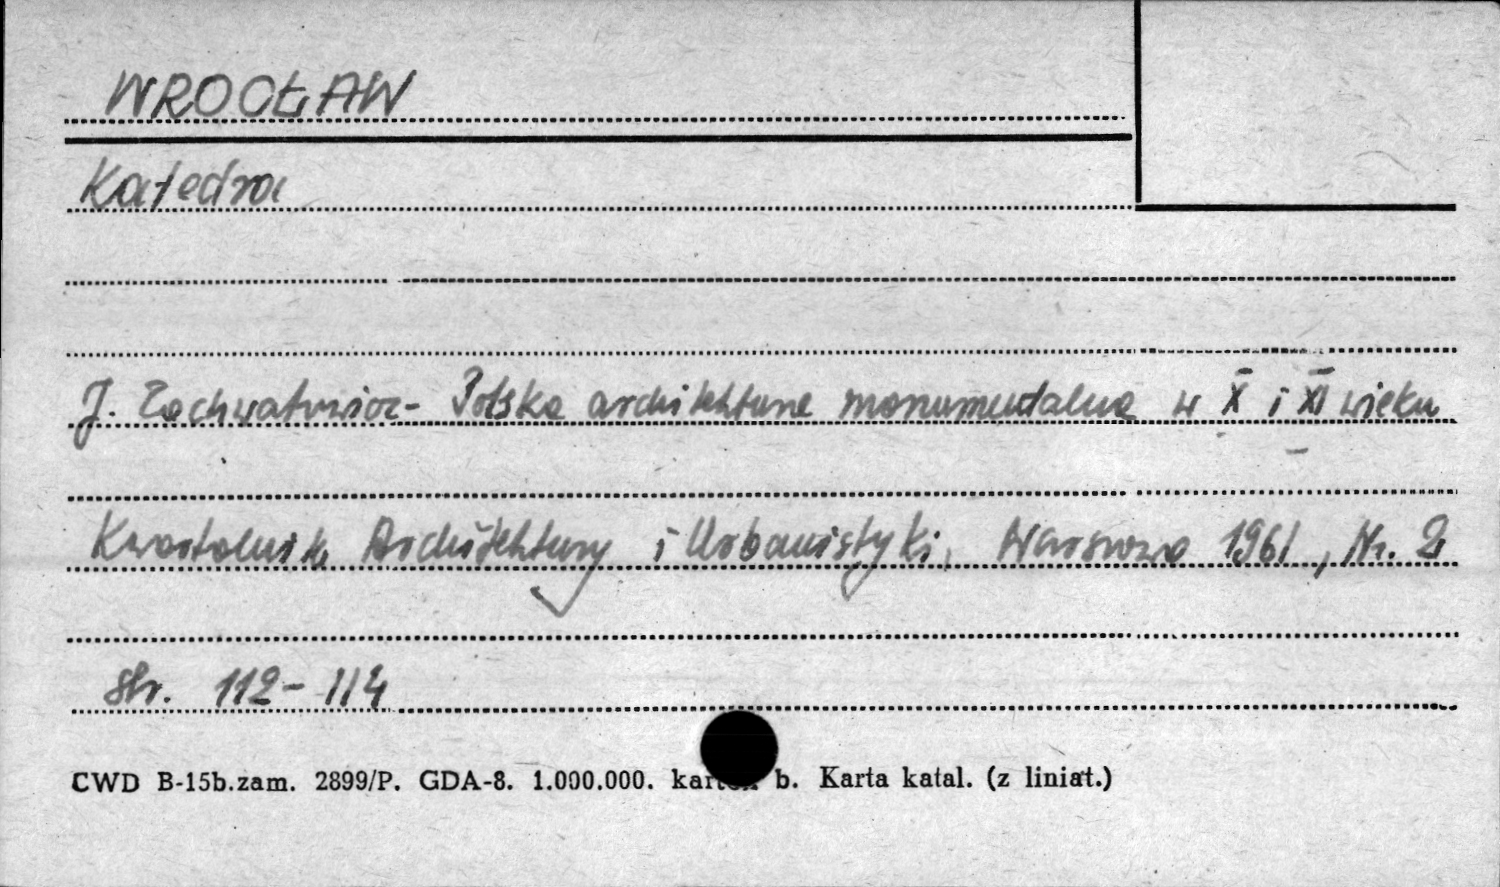 WROCŁAW
Katedra
J. Zachwatowicz - Polska architektura monumentalna w X i XI wieku
Kwartalnik Architektury i Urbanistyki, Warszawa 1961, Nr. 2
str. 112-114
CWD B-15b.zam. 2899/P. GDA-8. 1.000.000. b. Karta katal. (z liniat.)